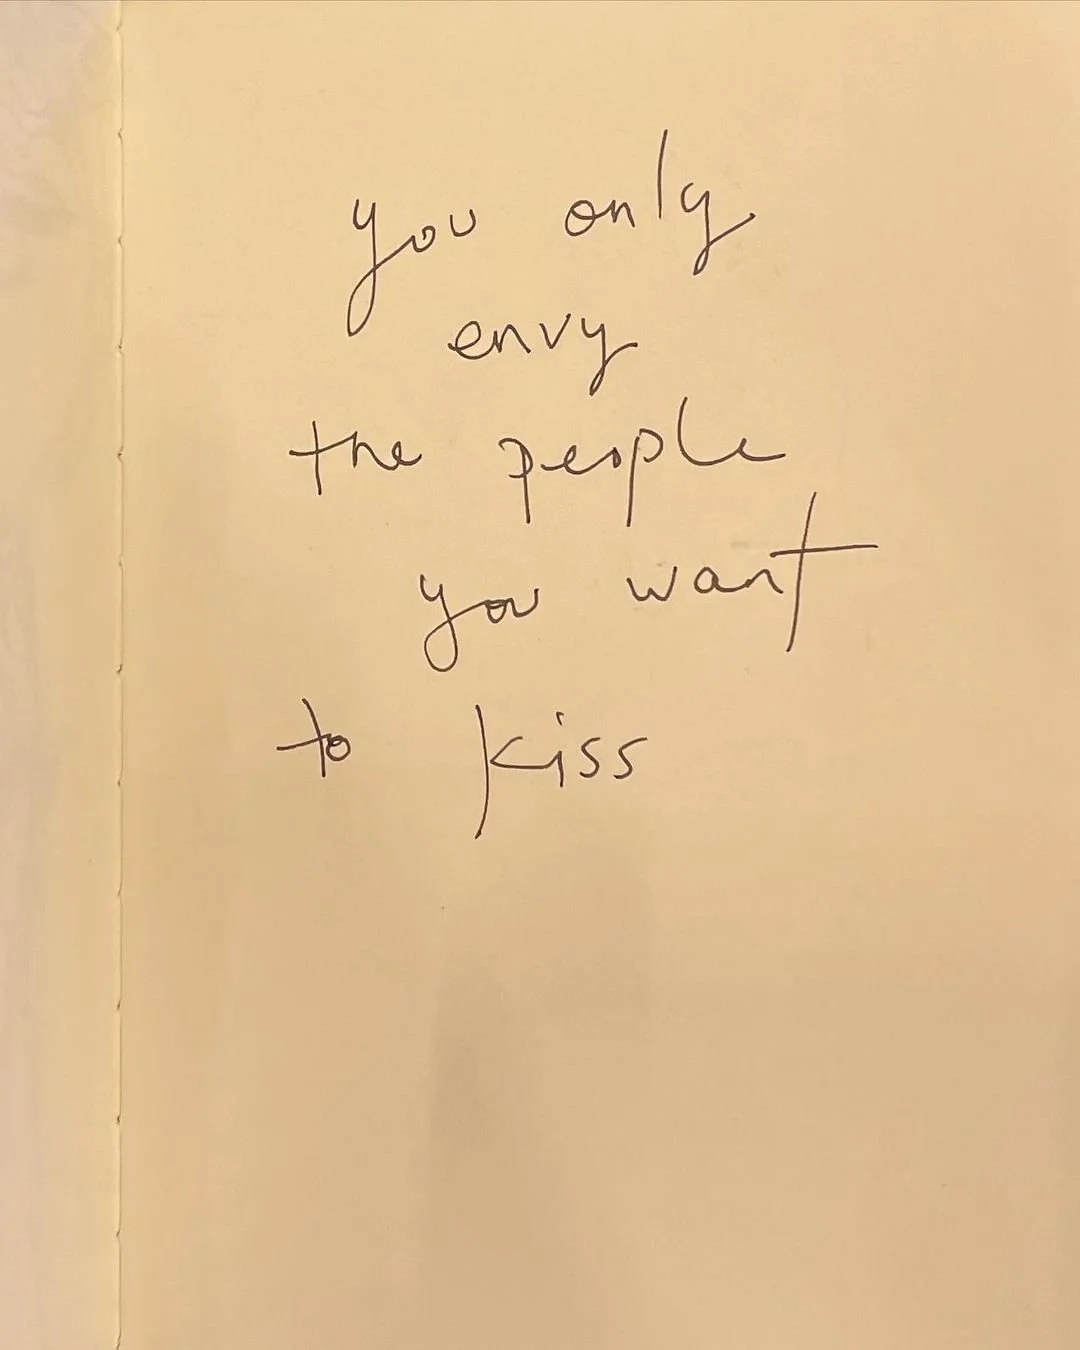 you only
envy
the people
you want
to kiss